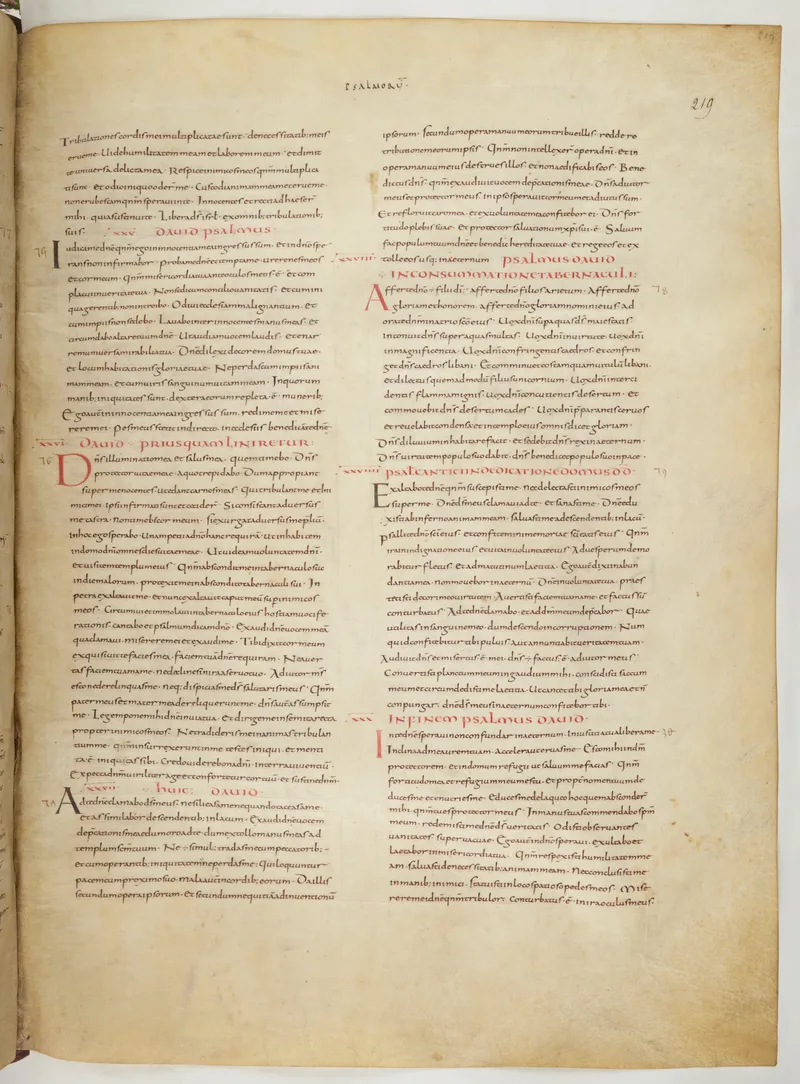 PSALMORŪ
219
219
Tribulationes cordis mei multiplicatae sunt · de necessitatib; meis
erue me · Uide humilitatem meam et laborem meum · et dimitte
uniuersa delicta mea · Respice inimicos meos qnm multiplica
ti sunt · et odio iniquo oder me · Custodi animam meam et erue me ·
non erubescam qnm speraui in te · Innocentes et recti adhaeser
mihi · quia sustinui te · Libera ds isrl · ex omnib; tribulationib;
suis ·
XXV DAUID PSALMUS
Iudica me dne qnm ego in innocentia mea ingressus sum · et in dno spe
rans non infirmabor · proba me dne et tempta me · ure renes meos
et cor meum · qnm misericordia tua ante oculos meos ē · et com
placui in ueritate tua · Non sedi cum concilio uanitatis · et cum ini
qua gerentib; non introibo · Odiui ecclesiam malignantium · et
cum impiis non sedebo · Lauabo inter innocentes manus meas · et
circumdabo altare tuum dne · Ut audiam uocem laudis · et enar
rem uniuersa mirabilia tua · Dne dilexi decorem domus tuae ·
et locum habitationis gloriae tuae · Ne perdas cum impiis ani
mam meam · et cum uiris sanguinum uitam meam · In quorum
manib; iniquitates sunt · dextera eorum repleta ē · munerib;
Ego autē in innocentia mea ingressus sum · redime me et mise
rere mei · Pes meus stetit in directo · in ecclesiis benedicā te dne
XXVI DAUID · PRIUSQUAM LINIRETUR :
Dns illuminatio mea · et salus mea · quem timebo · Dns
protector uitae meae · a quo trepidabo · Dum appropiant
super me nocentes · ut edant carnes meas · Qui tribulant me et ini
mici mei · ipsi infirmati sunt et cecider · Si consistant aduersus
me castra · non timebit cor meum · si exurgat aduersus me pliū ·
in hoc ego sperabo · Unam petii a dno hanc requirā · ut inhabitem
in domo dni omnes dies uitae meae · Ut uideam uoluntatem dni ·
et uisitem templum eius · Qnm abscondit me in tabernaculo suo
in die malorum · protexit me in abscondito tabernaculi sui · In
petra exaltauit me · et nunc exaltauit caput meū sup inimicos
meos · Circuiui et immolaui in tabernaculo eius hostiam uocife
rationis · cantabo et psalmum dicam dno · Exaudi dne uocem meā
qua clamaui · miserere mei et exaudi me · Tibi dixit cor meum
exquisiuit te facies mea · faciem tuā dne requiram · Ne auer
tas faciem tuam a me · ne declines in ira a seruo tuo · Adiutor ms
esto ne derelinquas me · neq; dispicias me ds salutaris meus · Qnm
pater meus et mater mea dereliquerunt me · dns autē assumpsit
me · Legem pone mihi dne in uia tua · et dirige me in semita recta
propter inimicos meos · Ne tradideris me in animas tribulan
tium me · qnm insurrexerunt in me testes iniqui · et menti
ta ē iniquitas sibi · Credo uidere bona dni · in terra uiuentiū ·
Expecta dnm uiriliter age et confortetur cor tuū · et sustine dnm ·
XXVII HUIC : DAUID
Ad te dne clamabo ds meus · ne sileas a me · nequando taceas a me ·
et assimilabor descendentib; in lacum · Exaudi dne uocem
deprecationis meae dum oro ad te · dum extollo manus meas ad
templum scm tuum · Ne simul tradas me cum peccatorib; ·
et cum operantib; iniquitatem ne perdas me · Qui loquuntur
pacem cum proximo suo · mala autē in cordib; eorum · Da illis
secundum opera ipsorum · et secundum nequitiā adinuentionū
ipsorum · Secundum opera manuum eorum tribue illis · redde re
tributionem eorum ipsis · Qnm non intellexer opera dni · et in
opera manuum eius destrues illos · et non aedificabis eos · Bene
dictus dns · qnm exaudiuit uocem deprecationis meae · Dns adiutor
meus et protector meus · in ipso sperauit cor meum et adiutus sum ·
Et refloruit caro mea · et ex uoluntate mea confitebor ei · Dns for
titudo plebis suae · et protector saluationum xpi sui ē · Saluum
fac populum tuum dne et benedic hereditati tuae · et rege eos et ex
tolle eos usq; in aeternum
XXVIII PSALMUS DAUID
IN CONSUMMATIONE TABERNACULI :
Afferte dno filii di · afferte dno filios arietum · Afferte dno
gloriam et honorem · afferte dno gloriam nomini eius · ad
orate dnm in atrio sco eius · Uox dni sup aquas ds maiestatis
intonuit dns super aquas multas · Uox dni in uirtute · uox dni
in magnificentia · Uox dni confringentis cedros · et confrin
get dns cedros libani · Et comminuet eos tamquam uitulū libani ·
et dilectus quemadmodū filius unicornium · Uox dni interci
dentis flammam ignis · uox dni concutientis desertum · et
commouebit dns desertum cades · Uox dni pparantis ceruos
et reuelabit condensa · et in templo eius omnis dicet gloriam ·
Dns diluuium inhabitare facit · et sedebit dns rex in aeternum ·
Dns uirtutem populo suo dabit · dns benedicet populo suo in pace ·
XXVIIII PSAL CANTICI IN DEDICATIONE DOMUS DD :
Exaltabo te dne qnm suscepisti me · nec delectasti inimicos meos
super me · Dne ds meus clamaui ad te · et sanasti me · Dne edu
xisti ab inferno animam meam · saluasti me a descendentib; in lacū ·
Psallite dno sci eius · et confitemini memoriae scitatis eius · Qnm
ira in indignatione eius · et uita in uoluntate eius · Ad uesperum demo
rabitur fletus · et ad matutinum laetitia · Ego autē dixi in abun
dantia mea · non mouebor in aeternū · Dne in uoluntate tua · praes
titisti decori meo uirtutem · Auertisti faciem tuam a me · et factus sū
conturbatus · Ad te dne clamabo · et ad dm meum deprecabor · Quae
utilitas in sanguine meo · dum descendo in corruptionem · Num
quid confitebitur tibi puluis · aut annuntiabit ueritatem tuam ·
Audiuit dns et misertus ē mei · dns factus ē adiutor meus ·
Conuertisti planctum meum in gaudium mihi · concidisti saccum
meum et circumdedisti me laetitia · Ut cantet tibi gloria mea et n
conpungar · dne ds meus in aeternum confitebor tibi ·
XXX IN FINEM PSALMUS DAUID
In te dne speraui non confundar in aeternum · in iustitia tua libera me ·
Inclina ad me aurem tuam · accelera ut eruas me · Esto mihi in dm
protectorem · et in domum refugii ut saluum me facias · Qnm
fortitudo mea et refugium meum es tu · et propter nomen tuum de
duces me et enutries me · Educes me de laqueo hoc quem absconder
mihi · qnm tu es protector meus · In manus tuas commendabo spm
meum · redemisti me dne ds ueritatis · Odisti obseruantes
uanitates superuacue · Ego autē in dno speraui · exultabo et
laetabor in misericordia tua · Qnm respexisti humilitatem me
am · saluasti de necessitatib; animam meam · Nec conclusisti me
in manib; inimici · statuisti in loco spatioso pedes meos · Mise
rere mei dne qnm tribulor · conturbatus ē · in ira oculus meus ·